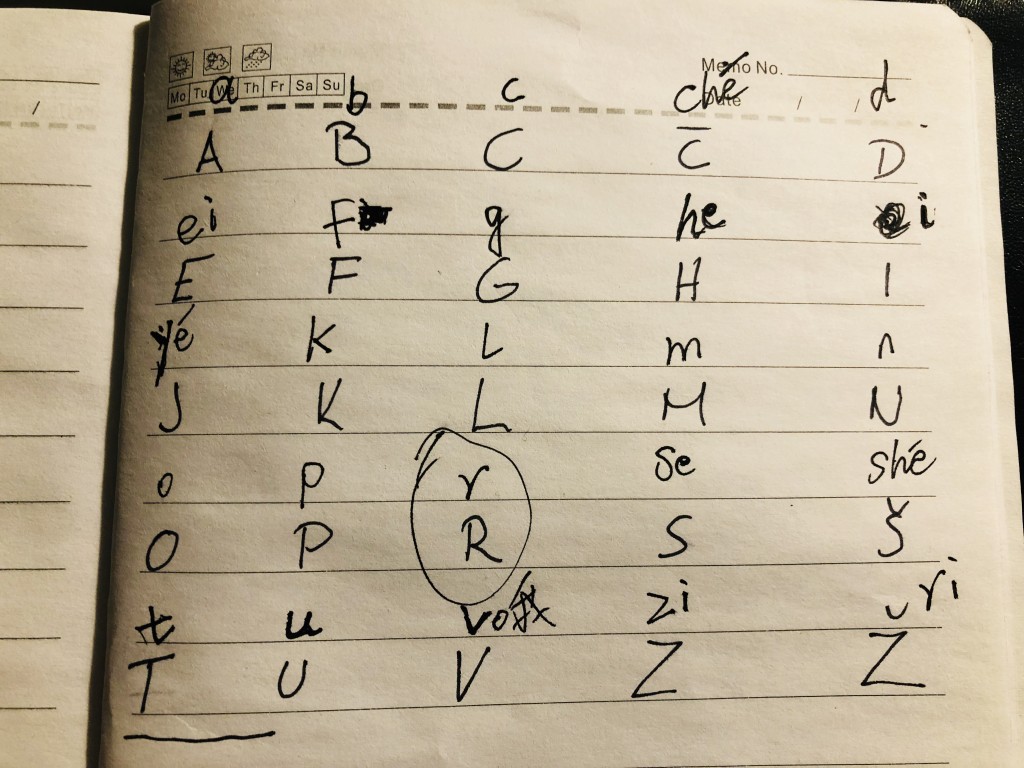 Memo No.
Mo Tu We Th Fr Sa Su
Date / /
a b c ché d
A B C C̄ D
ei F g he i
E F G H I
yé K L m n
J K L M N
o p r se shé
O P R S Š
t u vo zi ri
T U V Z Ž